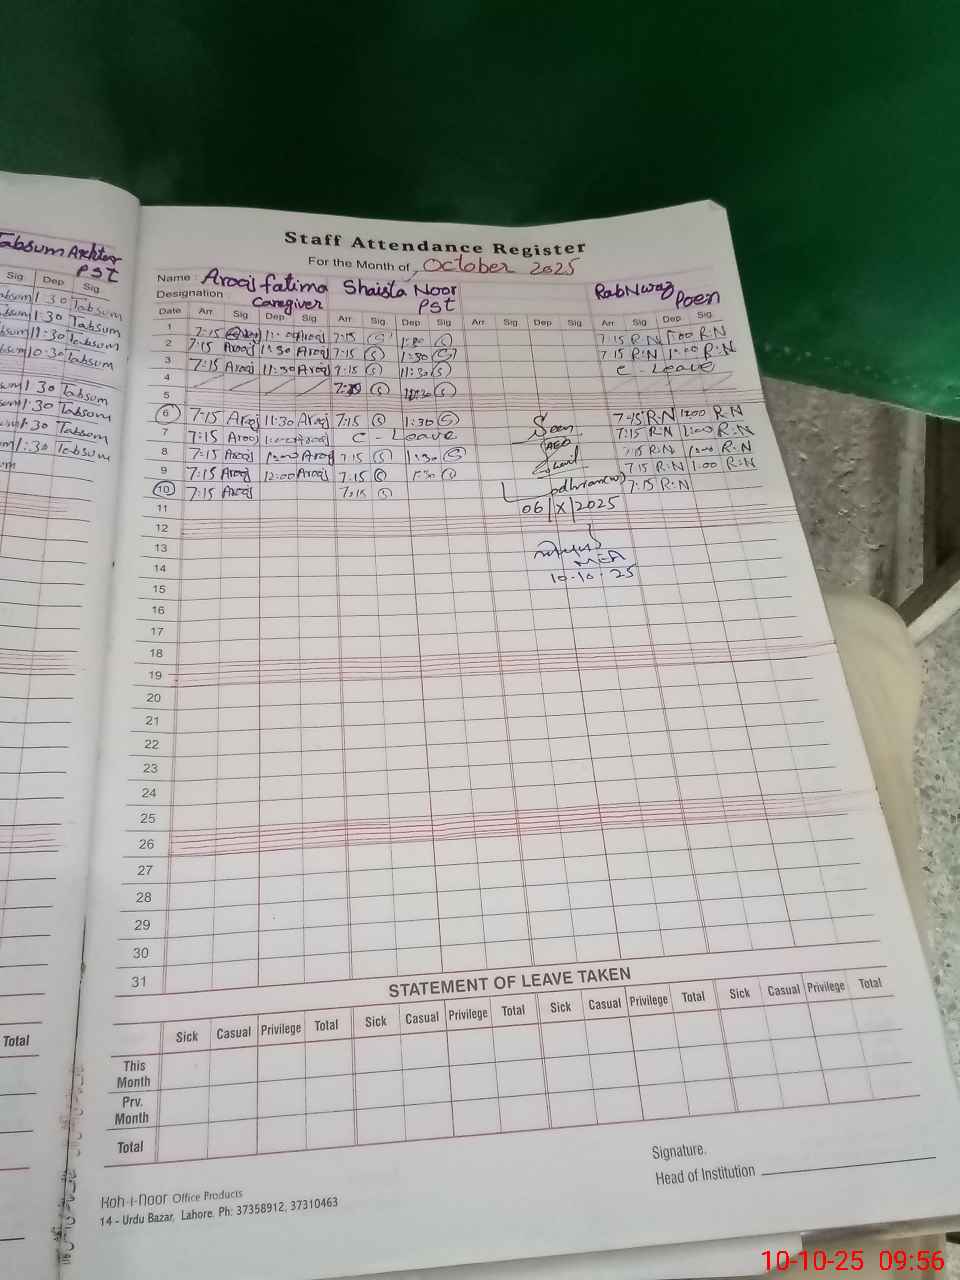 Tabsum Akhtar
PST
Sig. Dep Sig.
1:30 Tabsum
1:30 Tabsum
11:30 Tabsum
10:30 Tabsum
1:30 Tabsum
1:30 Tabsum
1:30 Tabsum
1:30 Tabsum
Total
Staff Attendance Register
For the Month of October 2025
Name Arooj fatima Shaista Noor RabNwaz
Designation Caregiver PST Poen
Date Arr Sig. Dep Sig. Arr Sig. Dep Sig. Arr Sig. Dep Sig. Arr Sig. Dep Sig.
1 7:15 Arooj 11:00 Arooj 7:15 (S) 1:30 (S) 7:15 R.N 1:00 R.N
2 7:15 Arooj 11:30 Arooj 7:15 (S) 1:30 (S) 7:15 R.N 1:00 R.N
3 7:15 Arooj 11:30 Arooj 7:15 (S) 11:30 (S) C - Leave
4 (S) (S)
5
6 7:15 Arooj 11:30 Arooj 7:15 (S) 1:30 (S) Seen 7:45 R.N 1:00 R.N
7 7:15 Arooj 1:00 Arooj C - Leave AEO 7:15 R.N 1:00 R.N
8 7:15 Arooj 1:00 Arooj 7:15 (S) 1:30 (S) 7:15 R.N 1:00 R.N
9 7:15 Arooj 12:00 Arooj 7:15 (S) 1:30 (S) 7:15 R.N 1:00 R.N
10 7:15 Arooj 7:15 (S) 7:15 R.N
11 06/X/2025
12
13
14 MEA
15 10.10.25
16
17
18
19
20
21
22
23
24
25
26
27
28
29
30
31
STATEMENT OF LEAVE TAKEN
Sick Casual Privilege Total Sick Casual Privilege Total Sick Casual Privilege Total Sick Casual Privilege Total
This Month
Prv. Month
Total
Signature.
Head of Institution
Koh-i-Noor Office Products
14 - Urdu Bazar, Lahore. Ph: 37358912, 37310463
10-10-25 09:56